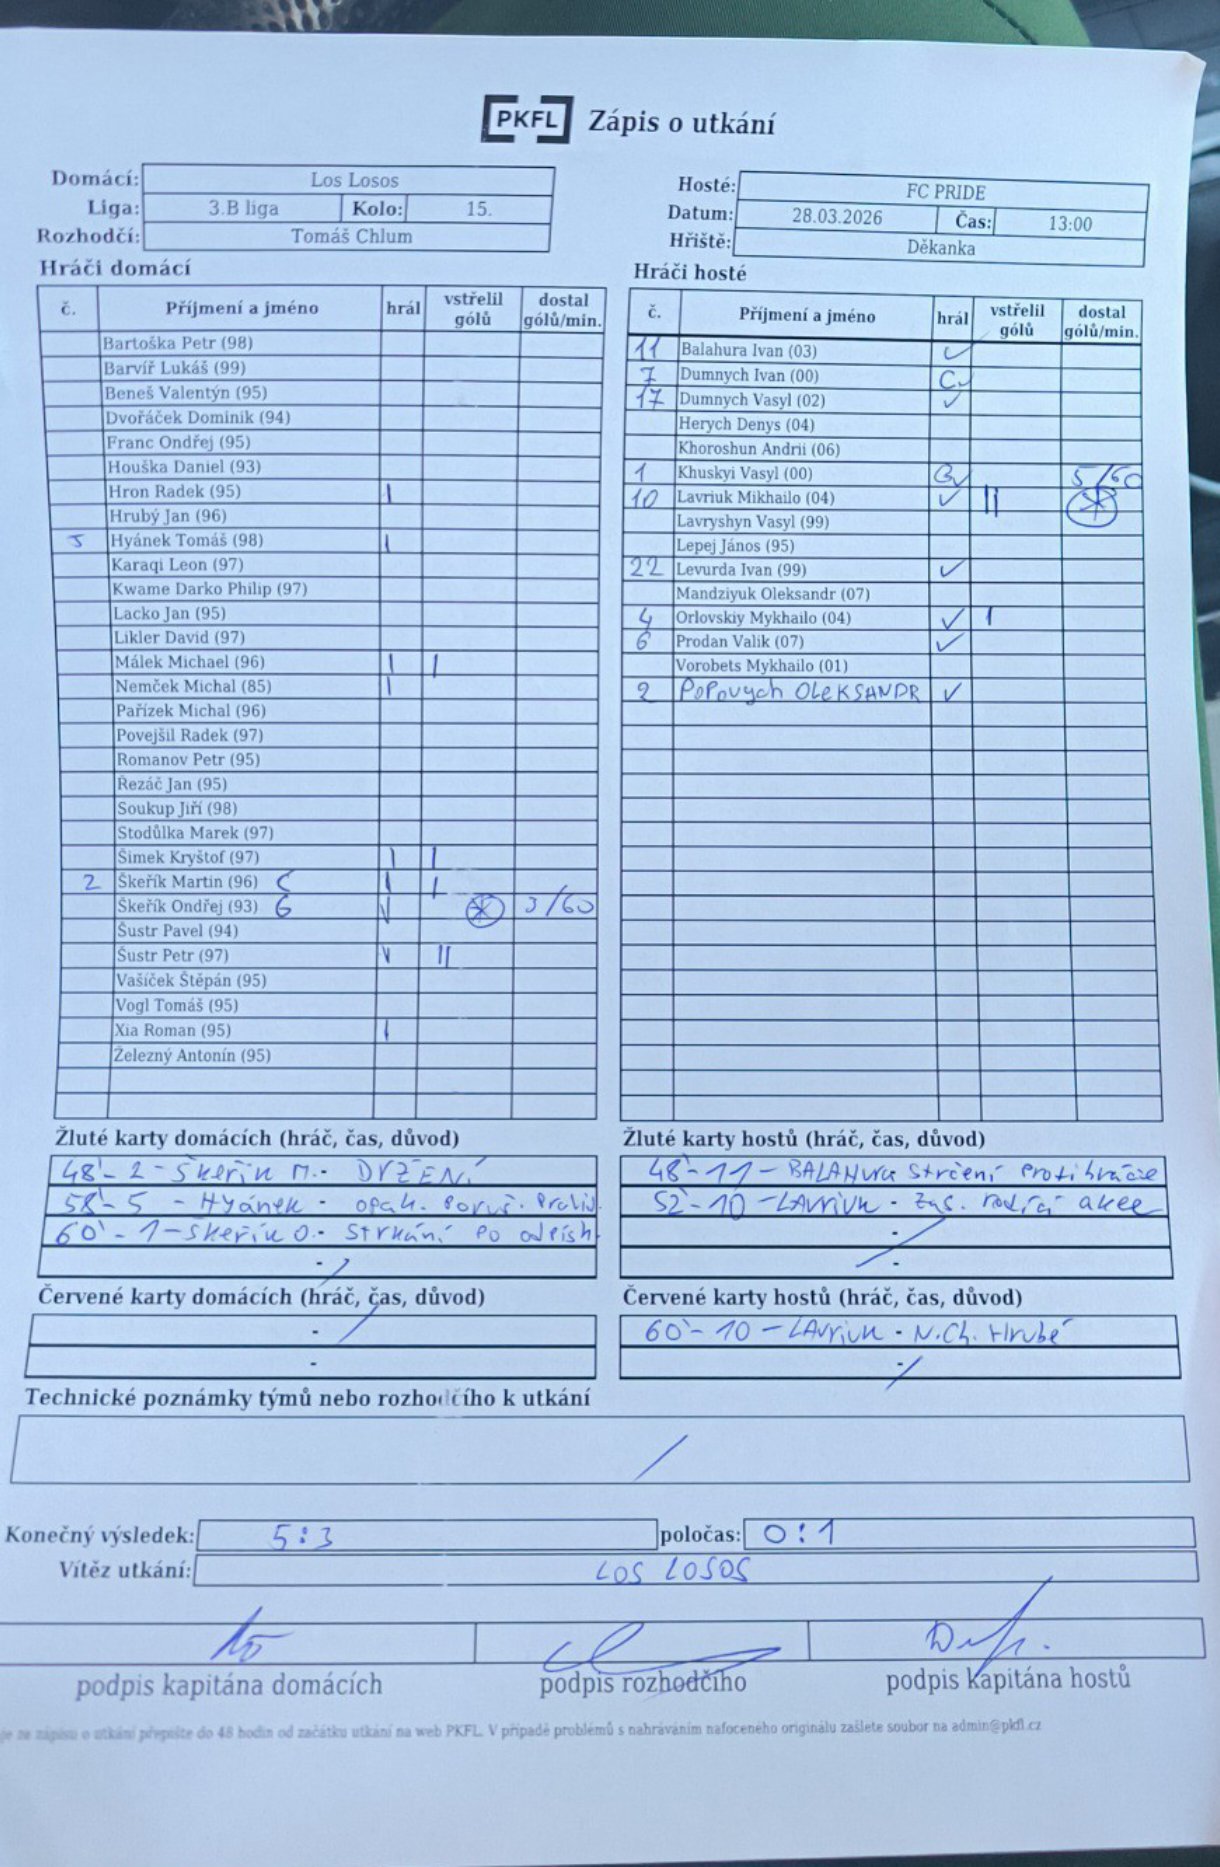 PKFL Zápis o utkání
Domácí: Los Losos
Liga: 3.B liga Kolo: 15.
Rozhodčí: Tomáš Chlum
Hosté: FC PRIDE
Datum: 28.03.2026 Čas: 13:00
Hřiště: Děkanka
Hráči domácí
č. Příjmení a jméno hrál vstřelil gólů dostal gólů/min.
Bartoška Petr (98)
Barvíř Lukáš (99)
Beneš Valentýn (95)
Dvořáček Dominik (94)
Franc Ondřej (95)
Houška Daniel (93)
Hron Radek (95) |
Hrubý Jan (96)
5 Hyánek Tomáš (98) |
Karaqi Leon (97)
Kwame Darko Philip (97)
Lacko Jan (95)
Likler David (97)
Málek Michael (96) | |
Nemček Michal (85) |
Pařízek Michal (96)
Povejšil Radek (97)
Romanov Petr (95)
Řezáč Jan (95)
Soukup Jiří (98)
Stodůlka Marek (97)
Šimek Kryštof (97) | |
2 Škeřík Martin (96) C | |
Škeřík Ondřej (93) G ✓ 3/60
Šustr Pavel (94)
Šustr Petr (97) ✓ ||
Vašíček Štěpán (95)
Vogl Tomáš (95)
Xia Roman (95) |
Železný Antonín (95)
Hráči hosté
č. Příjmení a jméno hrál vstřelil gólů dostal gólů/min.
11 Balahura Ivan (03) ✓
7 Dumnych Ivan (00) C✓
17 Dumnych Vasyl (02) ✓
Herych Denys (04)
Khoroshun Andrii (06)
1 Khuskyi Vasyl (00) G✓ 5/60
10 Lavriuk Mikhailo (04) ✓ ||
Lavryshyn Vasyl (99)
Lepej János (95)
22 Levurda Ivan (99) ✓
Mandziyuk Oleksandr (07)
4 Orlovskiy Mykhailo (04) ✓ |
6 Prodan Valik (07) ✓
Vorobets Mykhailo (01)
2 POPOVYCH OLEKSANDR ✓
Žluté karty domácích (hráč, čas, důvod)
48' - 2 - Škeřík M. - DRŽENÍ
58' - 5 - Hyánek - opak. poruš. pravid.
60' - 1 - Škeřík O. - strkání po odpísk.
-
Žluté karty hostů (hráč, čas, důvod)
48' - 11 - BALAHURA strčení protihráče
52' - 10 - LAVRIUK - zas. rodící akce
-
-
Červené karty domácích (hráč, čas, důvod)
-
-
Červené karty hostů (hráč, čas, důvod)
60' - 10 - LAVRIUK - N.Ch. Hrubé
-
Technické poznámky týmů nebo rozhodčího k utkání
Konečný výsledek: 5:3 poločas: 0:1
Vítěz utkání: LOS LOSOS
podpis kapitána domácích podpis rozhodčího podpis kapitána hostů
je ze zápisu o utkání přepište do 48 hodin od začátku utkání na web PKFL. V případě problémů s nahráváním nafoceného originálu zašlete soubor na admin@pkfl.cz